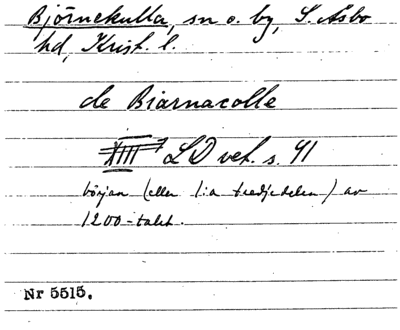 Björnekulla, sn o. by, S. Åsbo
hd, Krist. l.
de Biarnacolle
XIII LD vet. s. 41
början (eller 1:a tredjedelen) av
1200-talet.
Nr 5515.